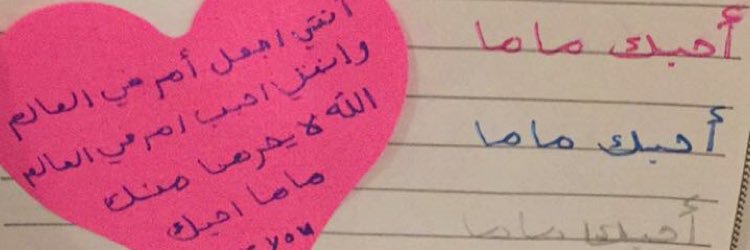 أنتي اجمل أم في العالم
وانتي احب ام في العالم
الله لا يحرمنا منك
ماما احبك
you
أحبك ماما
أحبك ماما
أحبك ماما